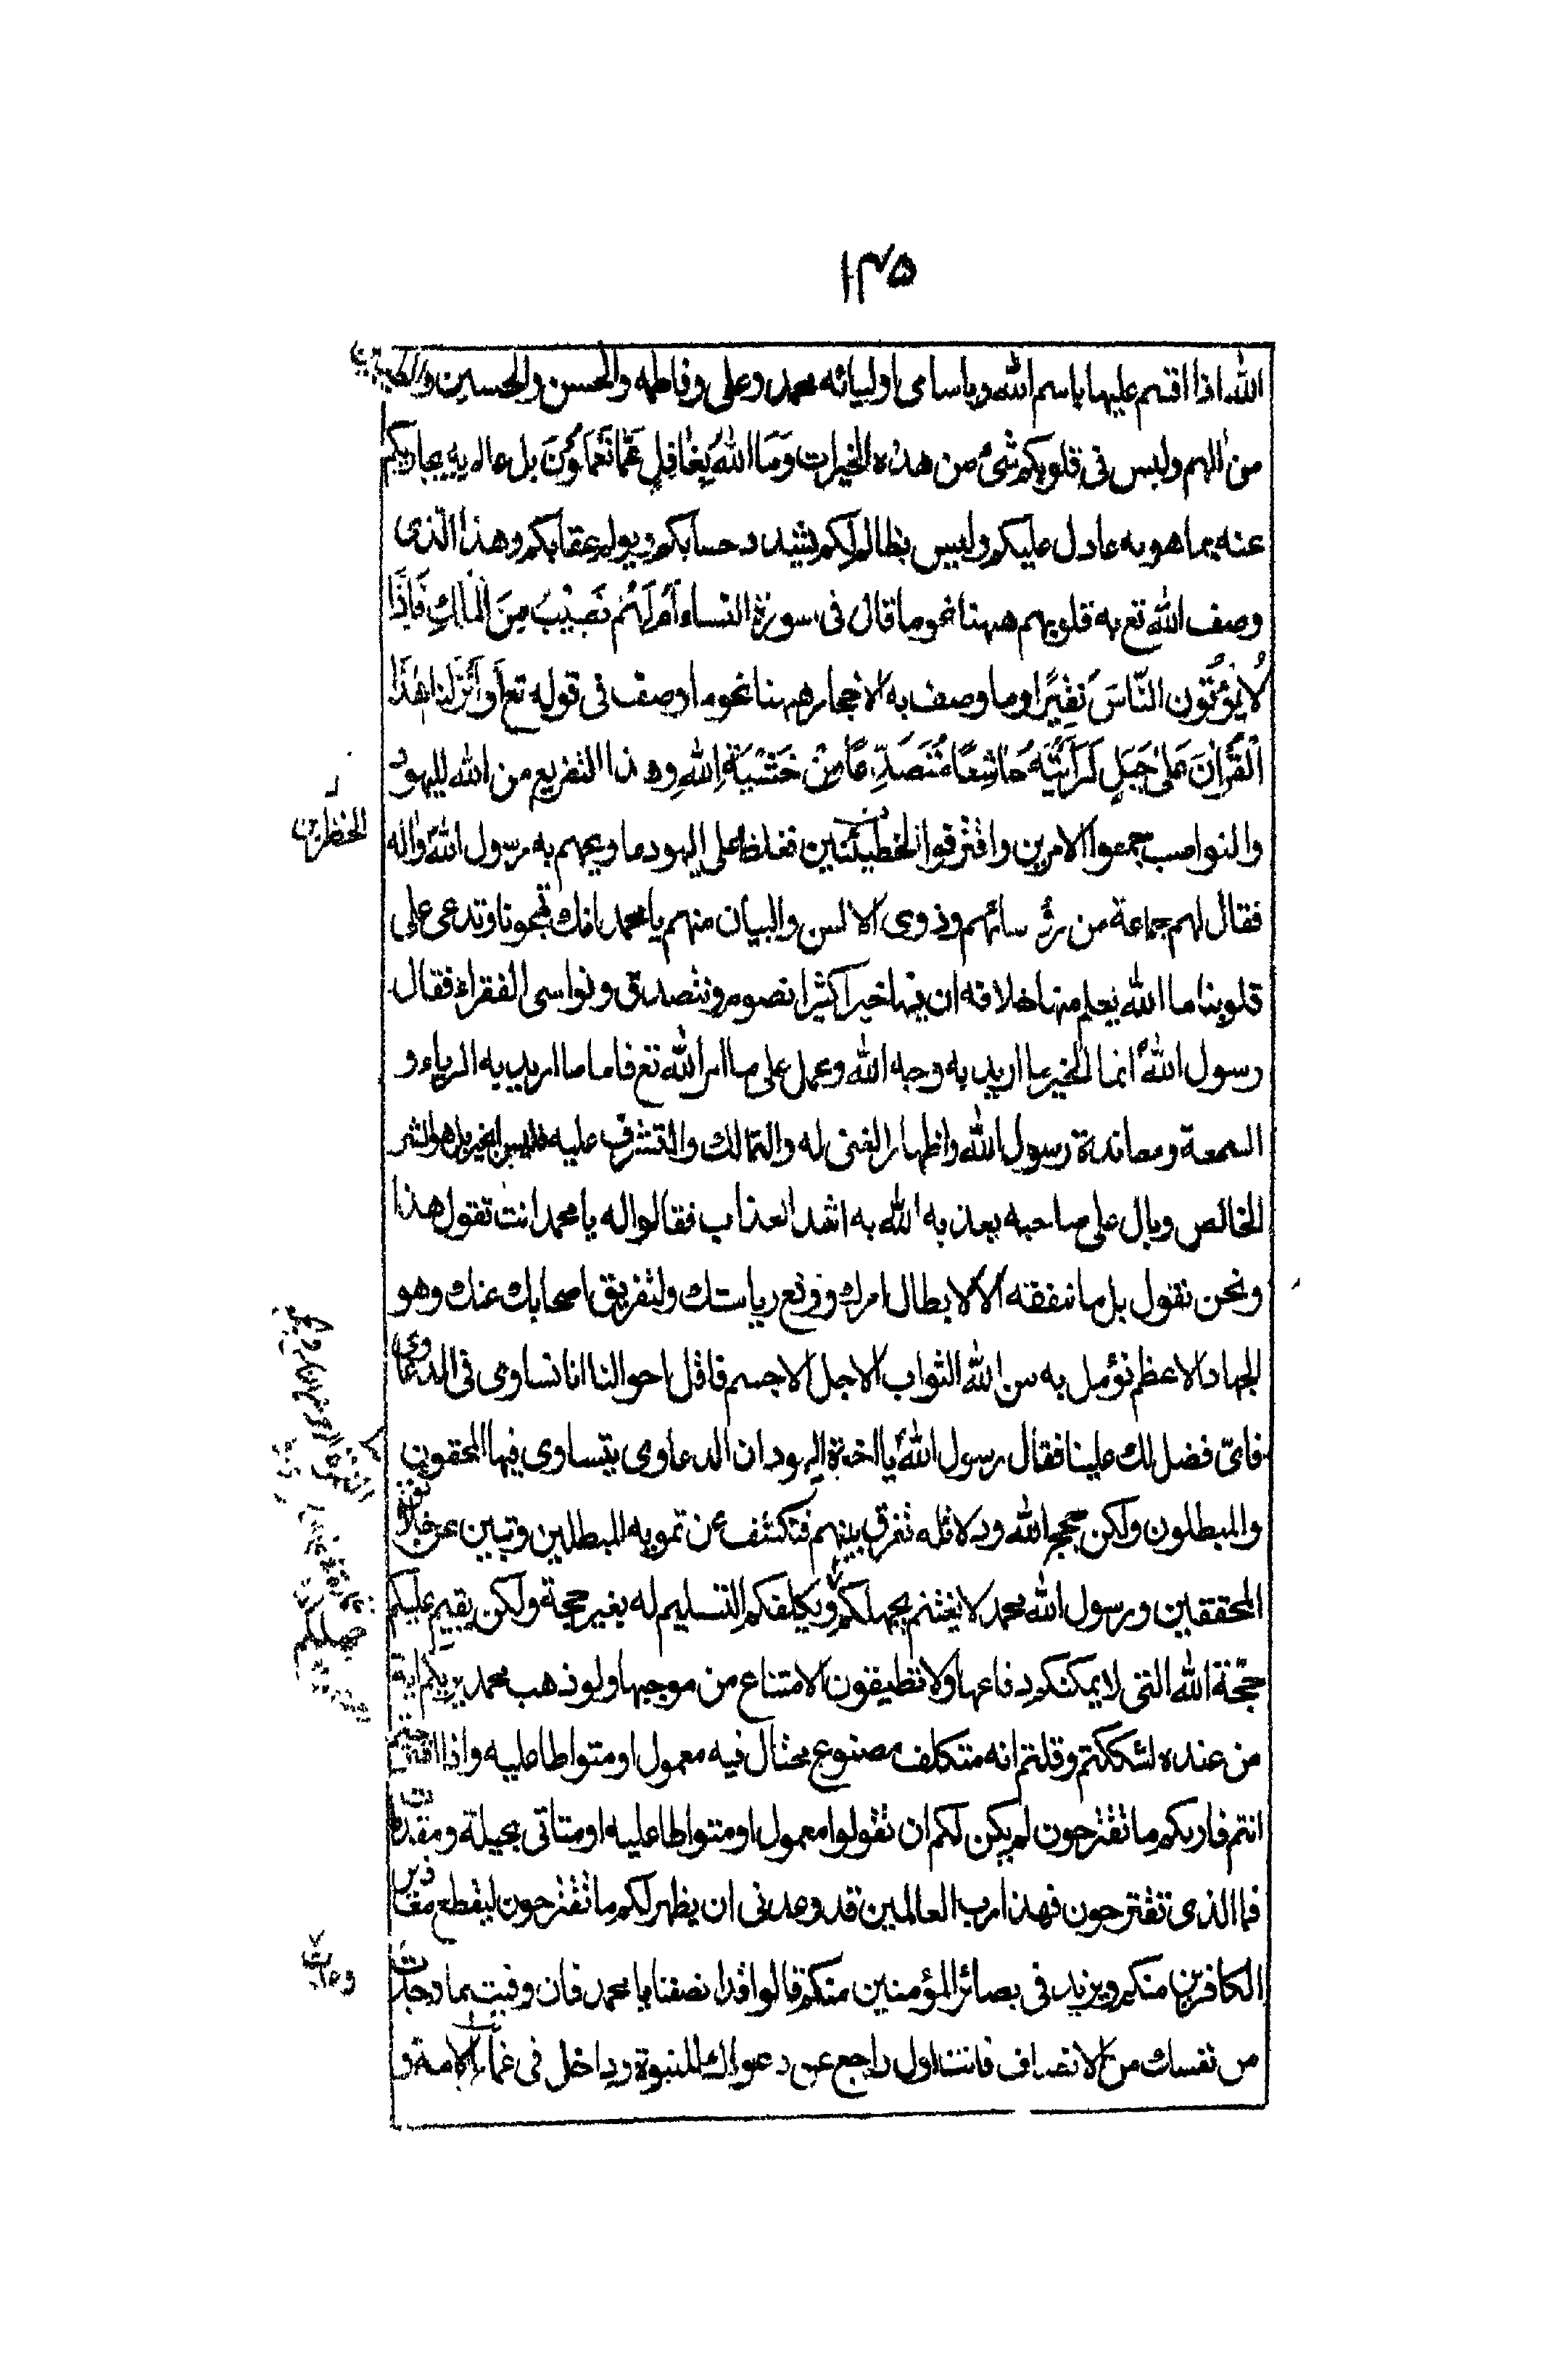 ١٣٥
الله اذا اقسم عليها باسم الله وباسامى اوليائه محمد وعلى وفاطمه والحسن والحسين والطيبين
من الهم وليس فى قلوبكم شئ من هذه الخيرات وَمَا اللهُ بِغَافِلٍ عَمَّا تَعْمَلُونَ بل عالم به يجازيكم
عنه بما هو به عادل عليكم وليس بظالم لكم يشدد حسابكم ويولم عقابكم وهذا الّذى
وصف الله تع به قلوبهم ههنا نحو ما قال فى سورة النساء اَمْ لَهُمْ نَصِيبٌ مِنَ الْمُلْكِ فَاِذًا
لَا يُؤْتُونَ النَّاسَ نَقِيرًا وما وصف به الاحجار ههنا نحو ما وصف فى قوله تع لَوْ اَنْزَلْنَا هٰذَا
الْقُرْاٰنَ عَلىٰ جَبَلٍ لَرَاَيْتَهُ خَاشِعًا مُتَصَدِّعًا مِنْ خَشْيَةِ اللهِ وهذا التقريع من الله لليهود
والنواصب جمعوا الامرين واقترفوا الخطيئتين فغلظ على اليهود ما وبخهم به رسول الله واله
فقال لهم جماعة من رؤسائهم وذوى الالسن والبيان منهم يا محمد انك تهجونا وتدعى على
قلوبنا ما الله يعلم منها خلافه ان فيها خيرا كثيرا نصوم ونتصدق ونواسى الفقراء فقال
رسول الله انما الخير ما اريد به وجه الله وعمل على ما امر الله تع فاما ما اريد به الرياء و
السمعة ومعاندة رسول الله واظهار الغنى له والتمالك والتشرف عليه فليس بخير بل هو الشر
الخالص وبال على صاحبه يعذبه الله به اشد العذاب فقالوا له يا محمد انت تقول هذا
ونحن نقول بل ما ننفقه الا لابطال امرك ودفع رياستك ولتفريق اصحابك عنك وهو
الجهاد الاعظم نؤمل به من الله الثواب الاجل الاجسم فاقل احوالنا انا تساوى فى الدعاوى
فاىّ فضل لك علينا فقال رسول الله يا اخوة اليهود ان الدعاوى يتساوى فيها المحقون
والمبطلون ولكن حجج الله ودلائله تفرق بينهم فتكشف عن تمويه المبطلين وتبين عن حقائق
المحققين ورسول الله محمد لا يغتنم بجهلكم ويكلفكم التسليم له بغير حجة ولكن يقيم عليكم
حجّة الله التى لا يمكنكم دفاعها ولا تطيقون الامتناع من موجبها ولو ذهب محمد يريكم اية
من عنده لشككتم وقلتم انه متكلف مصنوع محتال فيه معمول او متواطا عليه واذا اقترحتم
انتم فاريكم ما تقترحون لم يكن لكم ان تقولوا معمول او متواطا عليه او متأتى بحيلة ومقدمات
فما الذى تقترحون فهذا رب العالمين قد وعدنى ان يظهر لكم ما تقترحون ليقطع معاذير
الكافرين منكم ويزيد فى بصائر المؤمنين منكم قالوا قد انصفتنا يا محمد فان وفيت بما وعدت
من نفسك من الانصاف فانت اول راجع عن دعواك للنبوة وداخل فى غمار الامة و
جهلكم
وعدت